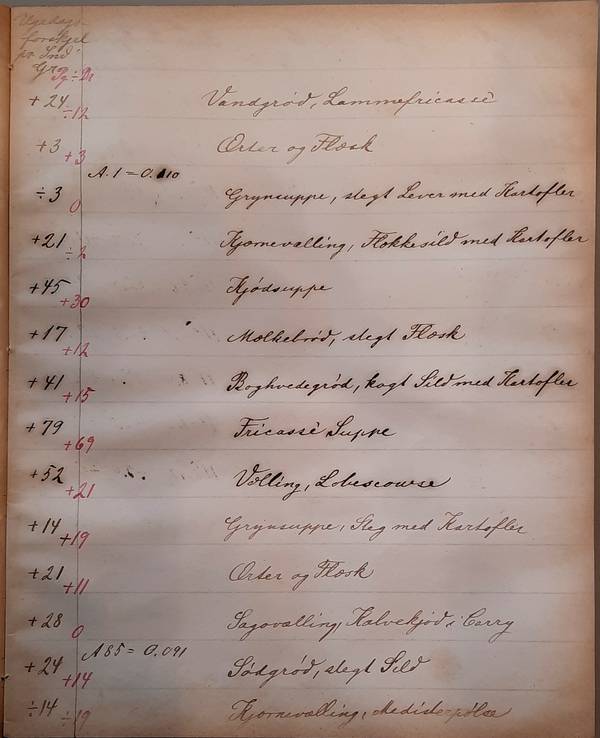 Ugedags
forskjel
pr Ind
Gro
Sg ÷ Di
+24 Vandgrød, Lammefricassè
÷12
+3 Erter og Flæsk
+3
A. 1 = 0.110
÷3 Grynsuppe, stegt Lever med Kartofler
0
+21 Kjærnevælling, Flækkesild med Kartofler
÷2
+45 Kjødsuppe
+30
+17 Mælkebrød, stegt Flæsk
+12
+41 Boghvedegrød, kogt Sild med Kartofler
+15
+79 Fricassè Suppe
+69
+52 Vælling, Lobescouse
+21
+14 Grynsuppe, Steg med Kartofler
+19
+21 Erter og Flæsk
+11
+28 Sagovælling, Kalvekjød i Carry
0
A 85 = 0.091
+24 Sødgrød, stegt Sild
+14
÷14 Kjærnevælling, Medisterpølse
÷19